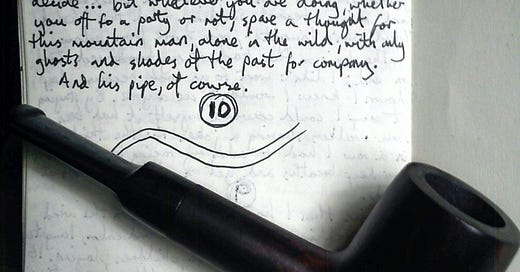 decide... but wherever you are doing, whether
you off to a party or not, spare a thought for
this mountain man, alone in the wild, with only
ghosts and shades of the past for company.
And his pipe, of course.
10